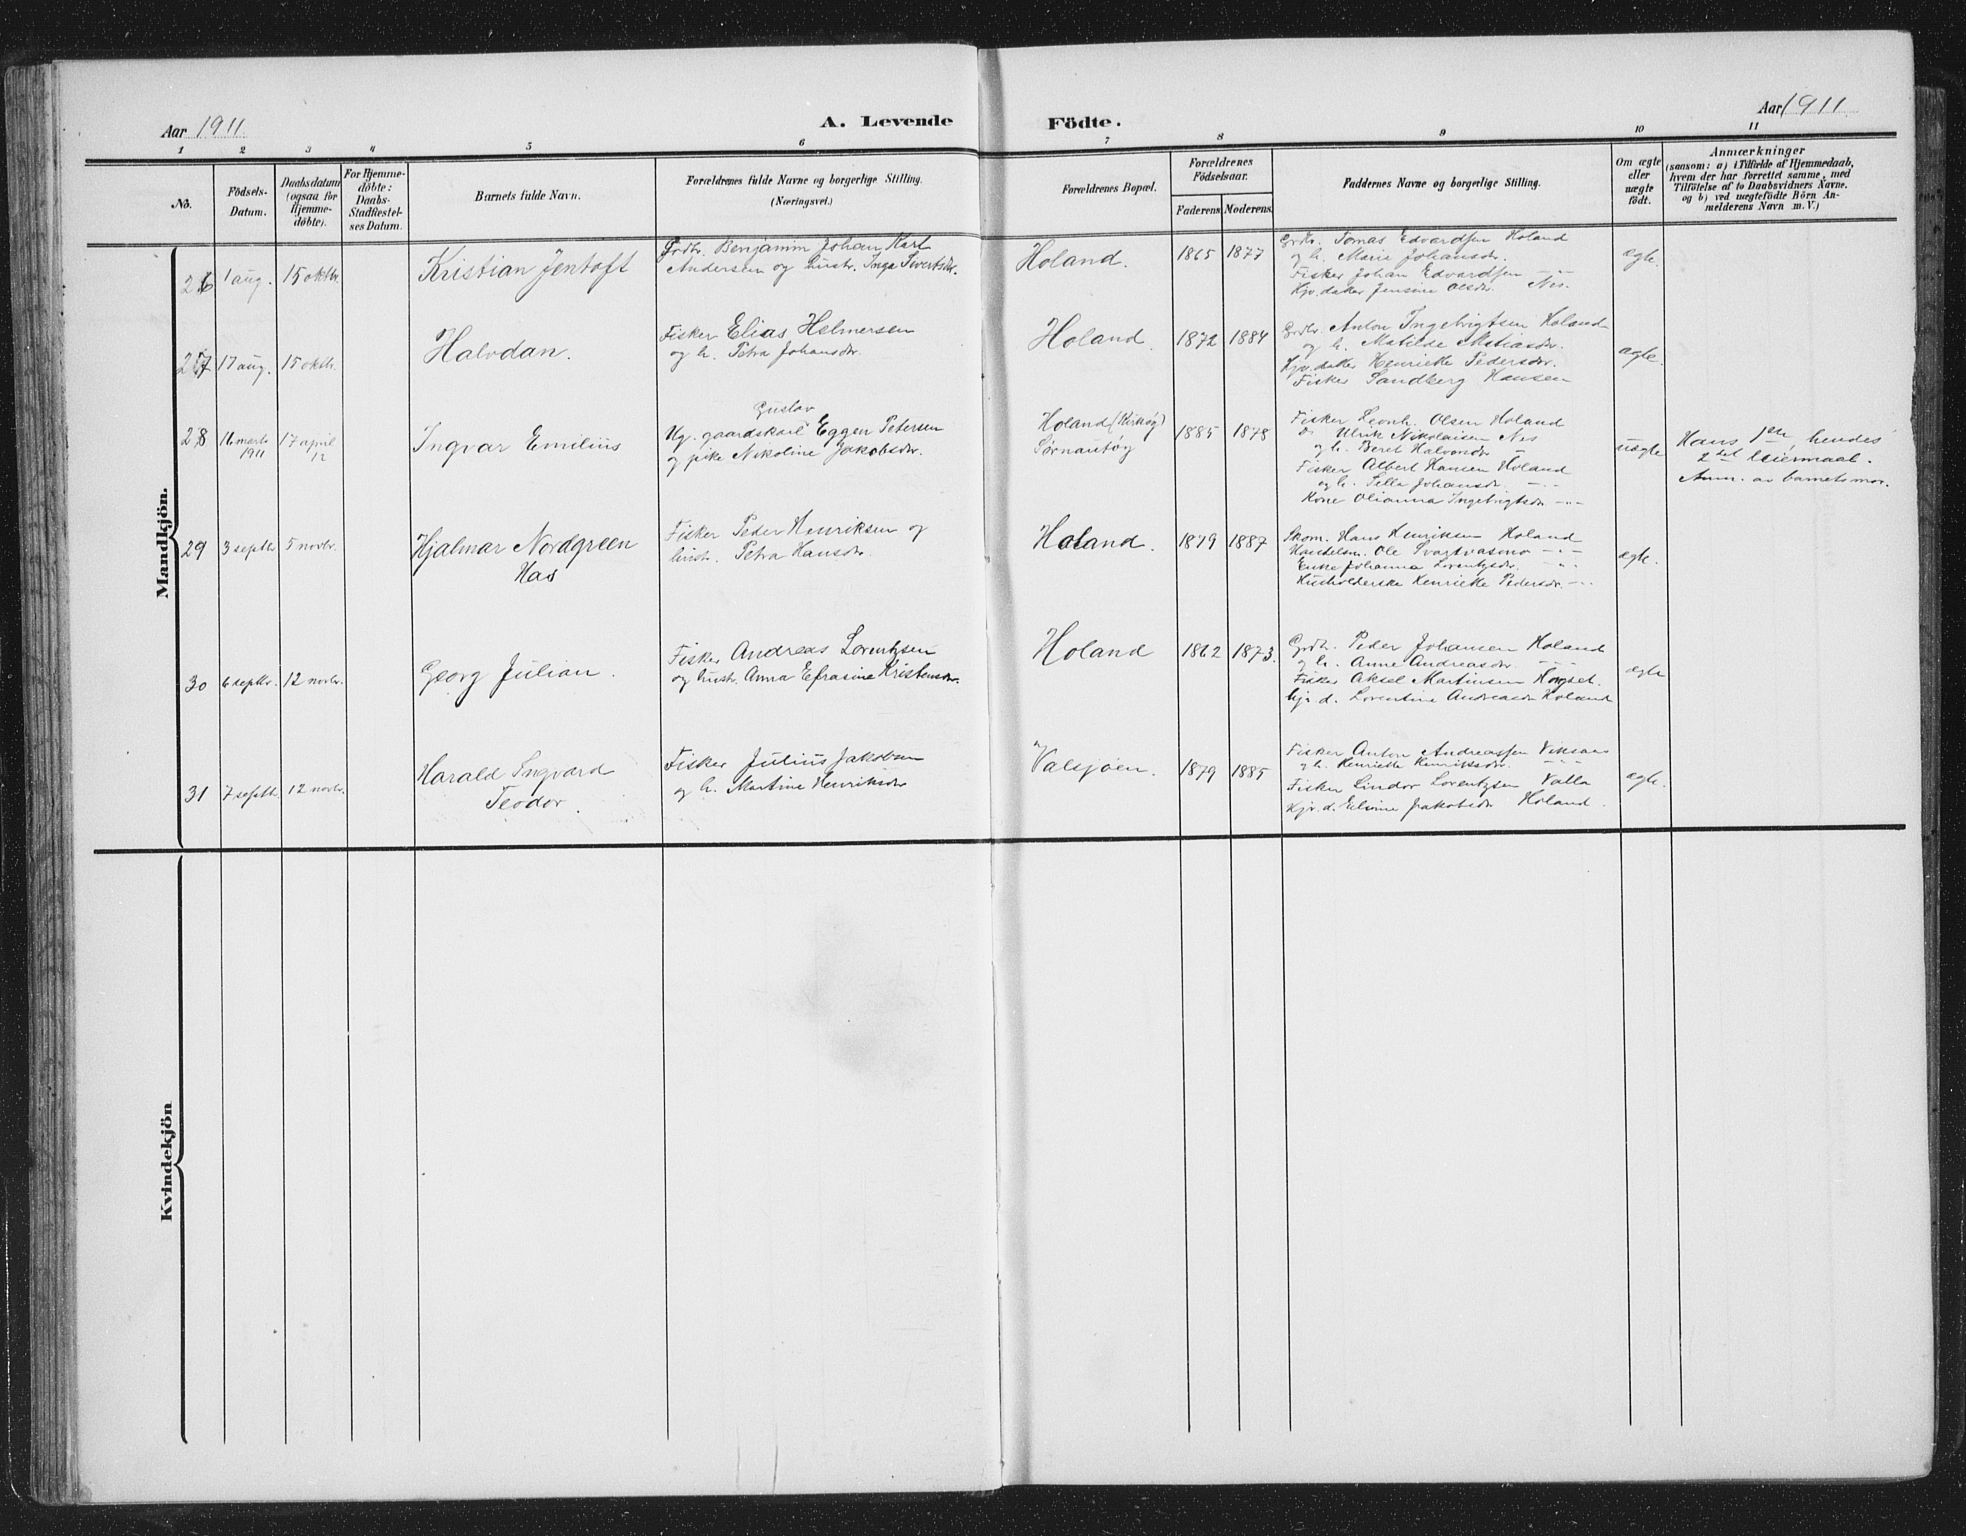 Aar 1911. A. Levende Födte. Aar 1911
1 2 3 4 5 6 7 8 9 10 11
No. Födsels-Datum. Daabsdatum (ogsaa for Hjemme-døbte). For Hjemme-døbte: Daabs-Stadfæstel-ses Datum. Barnets fulde Navn. Forældrenes fulde Navne og borgerlige Stilling. (Næringsvei.) Forældrenes Bopæl. Forældrenes Födselsaar. Faderens. Moderens. Faddernes Navne og borgerlige Stilling. Om ægte eller uægte født. Anmærkninger
(saasom: a) i Tilfælde af Hjemmedaab,
hvem der har forrettet samme, med
Tilføielse af to Daabsvidners Navne.
og b) ved uægtefödte Börn An-
melderens Navn m. V.)
Mandkjön.
26 1 aug. 15 oktbr. Kristian Jentoft
Fodbr. Benjamin Johan Karl
Andersen og hustr. Inga Sivertsdr.
Holand. 1865 1877
Grdbr. Tomas Edvardsen Holand
og h. Marie Johansdr.
Fisker Johan Edvardsen -"-
Kjv. daker Jensine Olsdr. Nes.
ægte.
27 17 aug. 15 oktbr. Halvdan.
Fisker Elias Helmersen
og h. Petra Johansdr.
Holand. 1872 1884
Grdbr. Anton Ingebrigtsen Holand
og h. Matilde Matiasdr.
Kjv. daker Henrikke Pedersdr.
Fisker Sandberg Hansen
ægte.
28 16 marts 1911 17 april 12 Ingvar Emilius
Gustav
Ug. gaardskarl Eggen Petersen
og pike Nikoline Jakobsdr.
Holand (Kirkøy)
Sørnautøy
1885 1878
Fisker Leonh. Olsen Holand
Do Ulrik Nikolaisen Nes
og h. Beret Halvorsdr. -"-
Fisker Albert Hansen Holand
og h. Sella Johansdr. -"-
Kone Olianna Ingebrigtsdr. -"-
uægte
Hans 1ste, hendes
2det leiermaal.
Anm. av barnets mor.
29 3 septbr. 5 novbr. Hjalmar Nordgreen
Has
Fisker Peder Henriksen og
hustr. Petra Hansdr.
Holand. 1879 1887
Skom. Hans Henriksen Holand
Handelsm. Ole Svartvasmo -"-
Enke Johanna Lorentzdr. -"-
Husholderske Henrikke Pedersdr. -"-
ægte.
30 6 septbr. 12 novbr. Georg Julian.
Fisker Andreas Lorentzsen
og hustr. Anna Efrasine Kristensdr.
Holand 1862 1873.
Grdbr. Peder Johansen Holand
og h. Anne Andreasdr. -"-
Fisker Aksel Martinsen Horgset.
kjv. d. Lorentine Andreasdr Holand
ægte
31 7 septbr. 12 novbr. Harald Ingvard
Teodor.
Fisker Julius Jakobsen
og h. Martine Henriksdr
Valsjøen. 1879 1885
Fisker Anton Andreassen Viksaas
og h. Henriette Henriksdr. -"-
Fisker Lindor Lorentzsen Valla
Kjv. d. Elvine Jakobsdr Holand.
ægte.
Kvindekjön